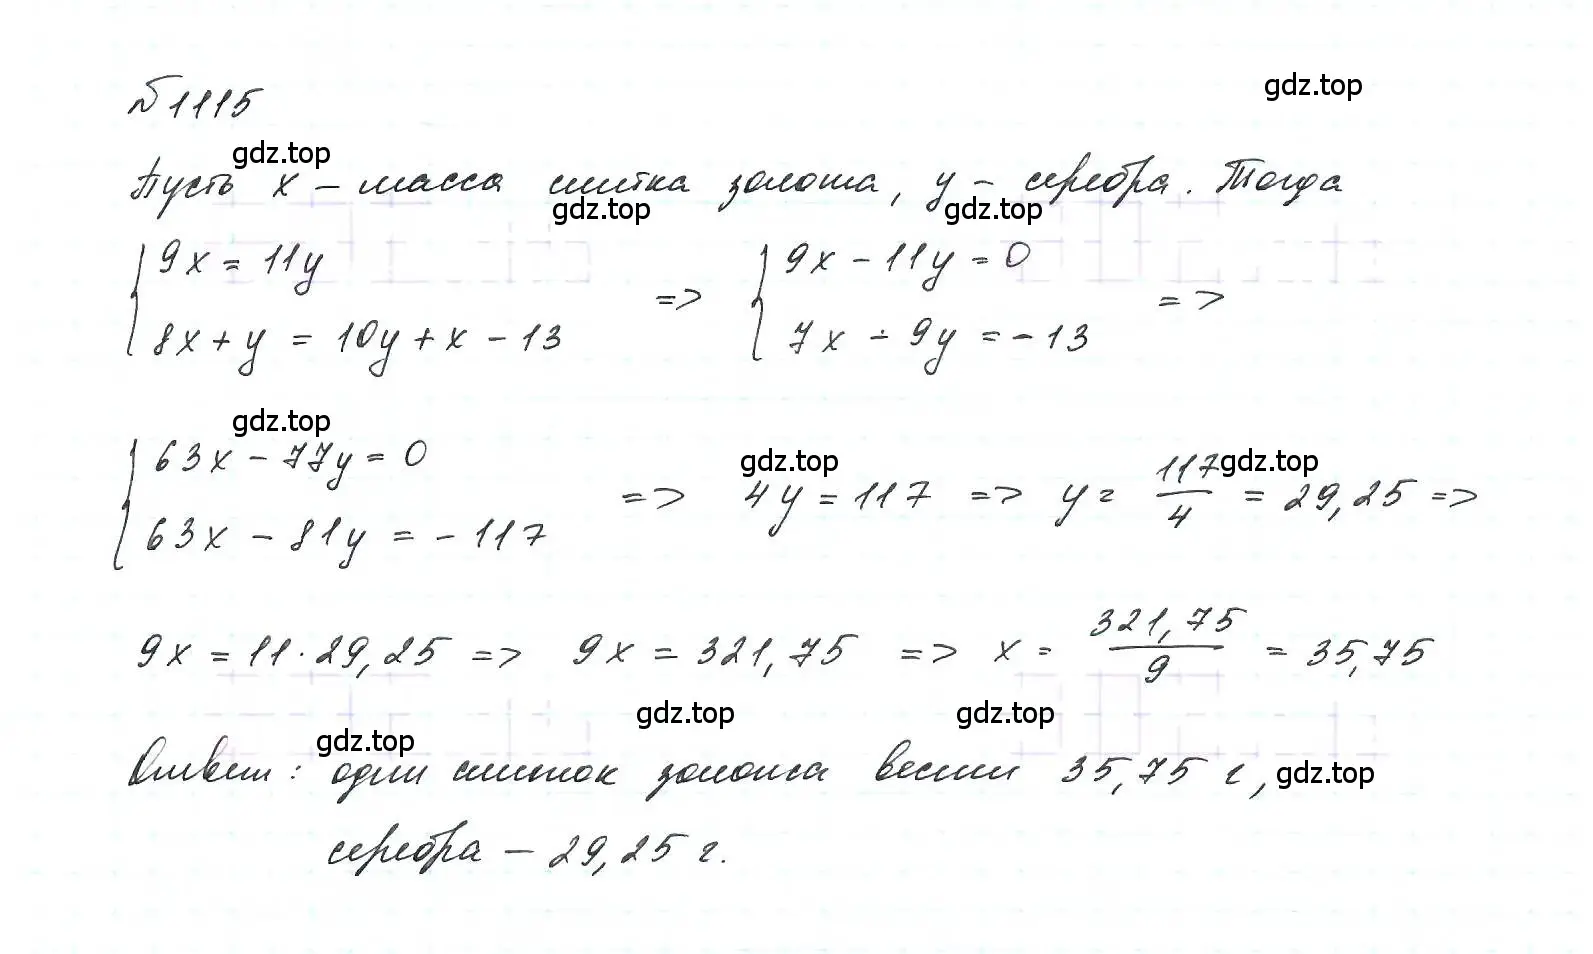 №1115
gdz.top
gdz.top
Пусть x – масса слитка золота, y – серебра. Тогда
gdz.top
gdz.top
{ 9x = 11y
8x + y = 10y + x - 13 => { 9x - 11y = 0
7x - 9y = -13 =>
gdz.top
{ 63x - 77y = 0
63x - 81y = -117 => 4y = 117 => y = 117/4 = 29,25 =>
gdz.top
gdz.top
9x = 11 · 29,25 => 9x = 321,75 => x = 321,75/9 = 35,75
gdz.top
gdz.top
gdz.top
Ответ: один слиток золота весит 35,75 г,
gdz.top
серебра – 29,25 г.